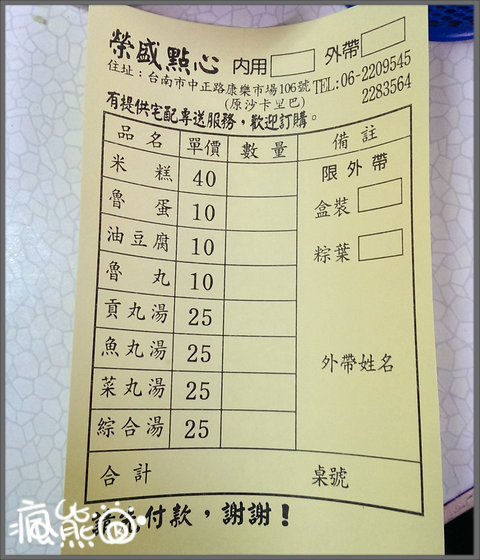 榮盛點心 內用 外帶
住址：台南市中正路康樂市場106號 TEL:06-2209545
(原沙卡里巴) 2283564
有提供宅配專送服務，歡迎訂購。
品名 單價 數量 備註
米糕 40 限外帶
魯蛋 10 盒裝
油豆腐 10 粽葉
魯丸 10
貢丸湯 25
魚丸湯 25 外帶姓名
菜丸湯 25
綜合湯 25
合計 桌號
付款，謝謝！
瘋熊